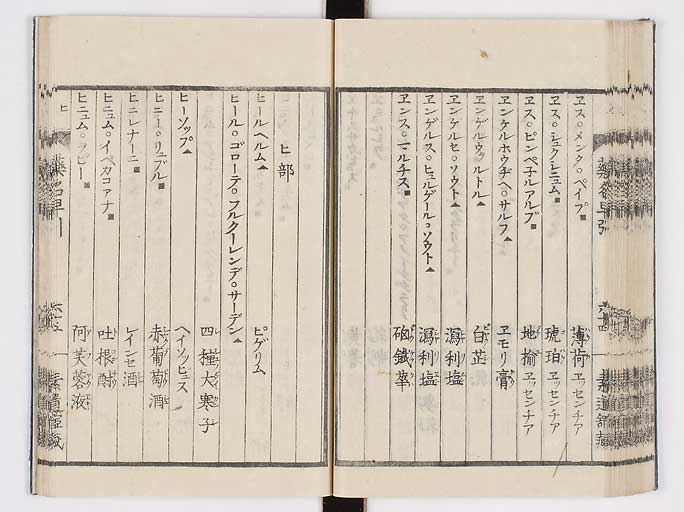 ヱス。メンタ。ペイプ■ 薄荷ヱッセンチア
ヱス。シュクシニュム■ 琥珀ヱッセンチア
ヱス。ピンペ子ルアルブ■ 地楡ヱッセンチア
ヱンケルホウヂヘ。サルフ▲ ヱモリ膏
ヱンゲルウヲルトル▲ 白芷
ヱンゲルセ。ソウト▲ 瀉利塩
ヱンゲルス。ビュルゲール。ソウト▲ 瀉利塩
ヱンス。マルチス■ 硇鐵華
ヒ部
ヒールヘルム▲ ピゲリム
ヒール。ゴローテ。フルクーレンデ。サーデン▲ 四種大寒子
ヒーソップ▲ ヘイソッピュス
ヒニー。リュブル■ 赤葡萄酒
ヒニレナーニ■ レインセ酒
ヒニュム。イペカコアナ■ 吐根酎
ヒニュム。ヲピー■ 阿芙蓉液
ヒ
藥名早引